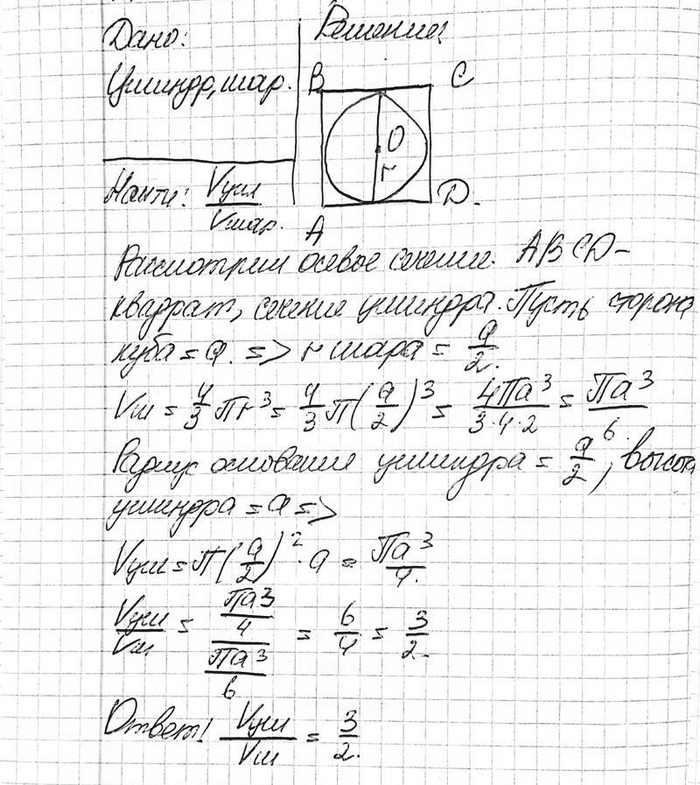 Дано:
Решение:
Цилиндр, шар.
B C
O
r
Найти: Vцил/Vшар.
A D.
Рассмотрим осевое сечение. ABCD –
квадрат, сечение цилиндра. Пусть сторона
куба = a. => r шара = a/2.
Vш = 4/3 Пr³ = 4/3 П(a/2)³ = 4Пa³/3·4·2 = Пa³/6
Радиус основания цилиндра = a/2, высота
цилиндра = a =>
Vцил = П(a/2)²·a = Пa³/4.
Vцил/Vш = Пa³/4 / Пa³/6 = 6/4 = 3/2.
Ответ: Vцил/Vш = 3/2.